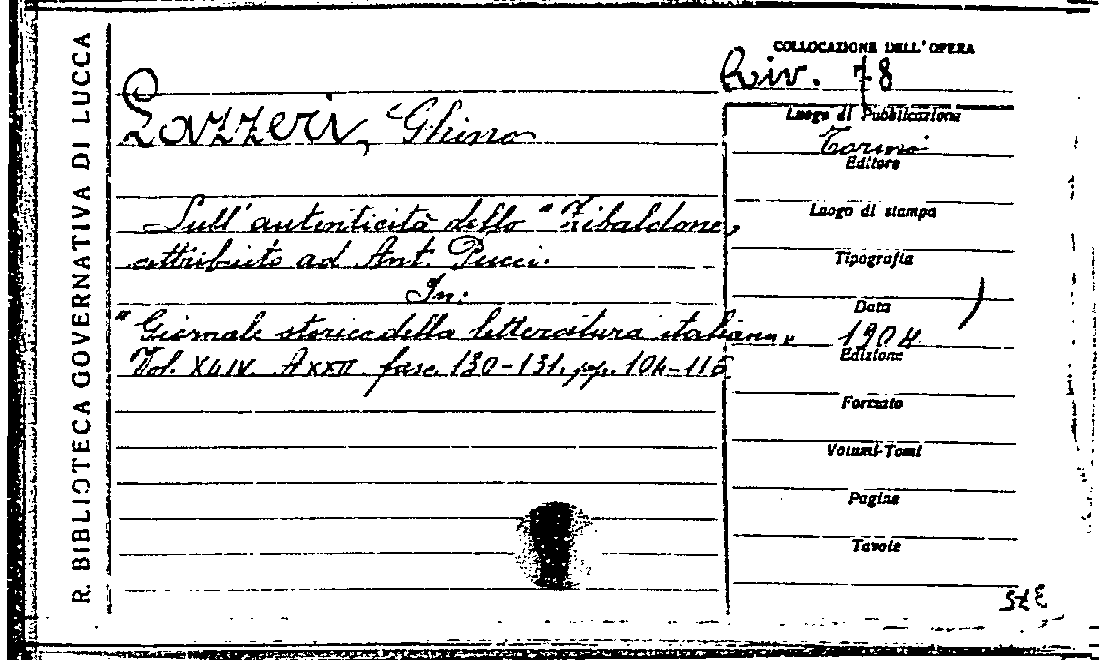 R. BIBLIOTECA GOVERNATIVA DI LUCCA
COLLOCAZIONE DELL'OPERA
Riv. 78
Lazzeri, Ghino
Luogo di Pubblicazione
Torino
Editore
Sull'autenticità dello "Zibaldone"
attribuito ad Ant. Pucci.
In:
"Giornale storico della letteratura italiana"
Vol. XLIV. A XXII fasc. 130-131. pp. 104-116
Luogo di stampa
Tipografia
Data
1904
Edizione
Formato
Volumi-Tomi
Pagine
Tavole